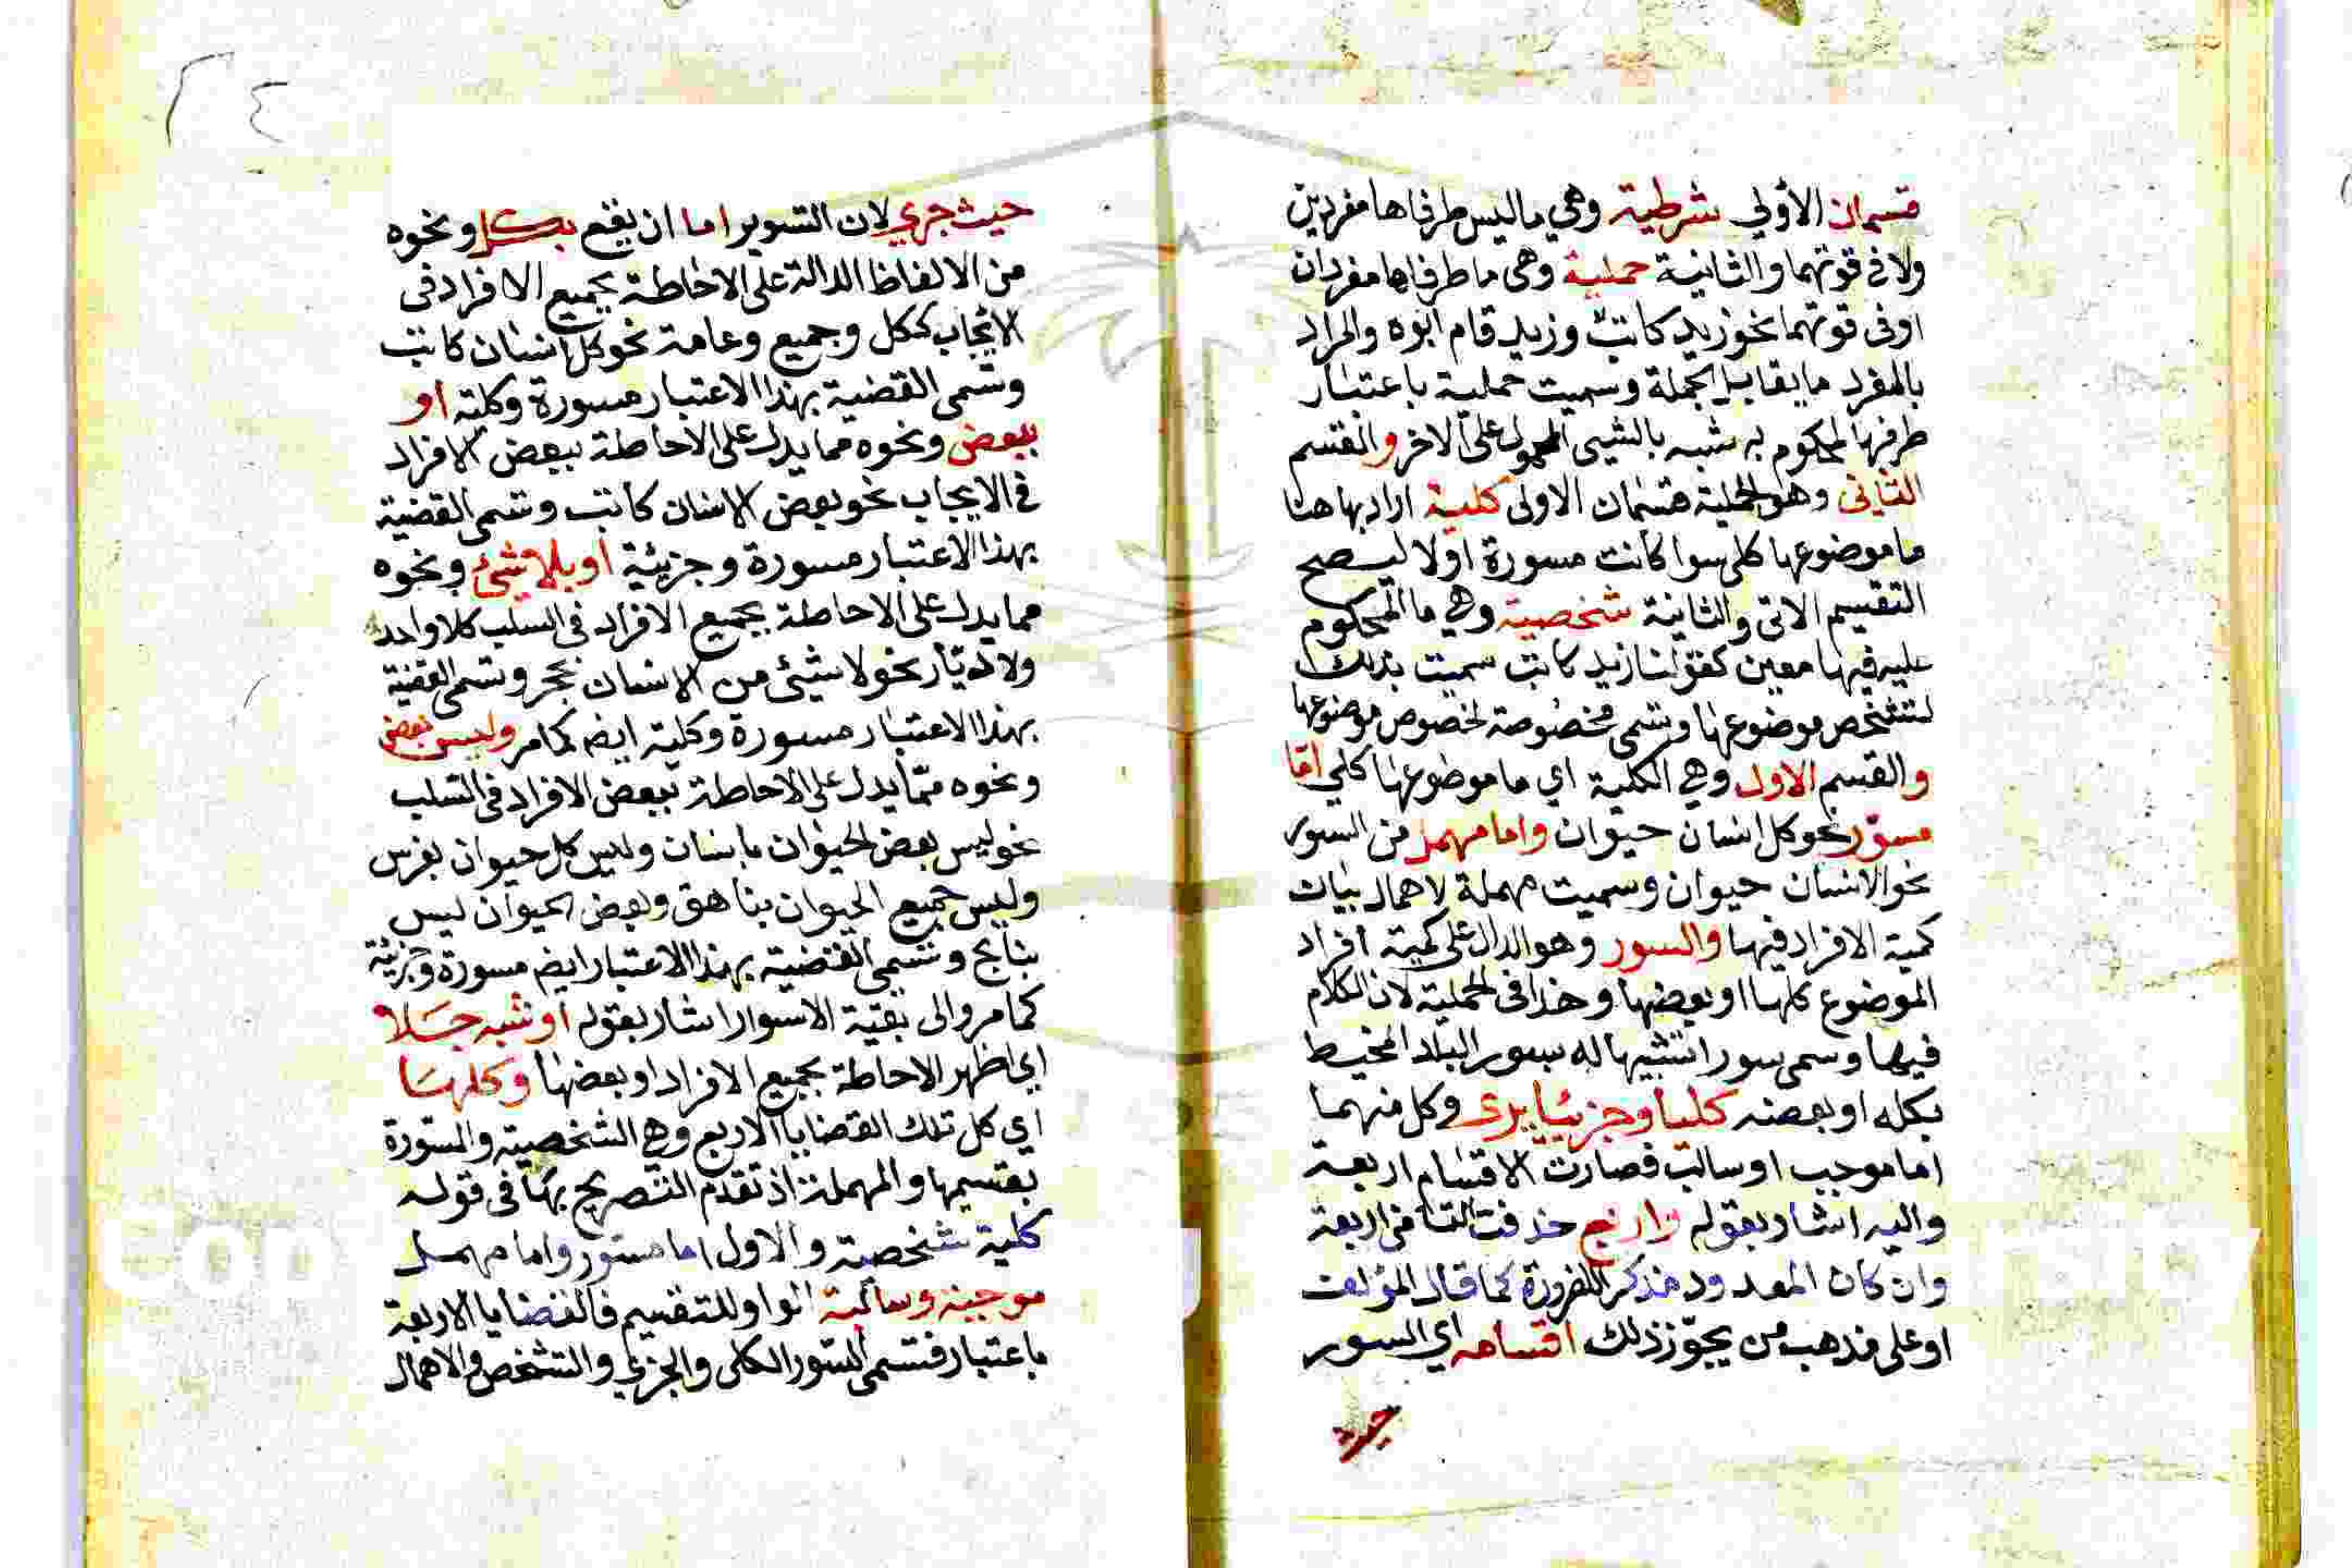 قسمان الأولي شرطية وهي ماليس طرفاها مفردين
ولا في قوتهما والثانية حملية وهي ما طرفاها مفردان
اوفى قوتهما نحو زيد كاتب وزيد قام ابوه والمراد
بالمفرد ما يقابل الجملة وسميت حملية باعتبار
طرفها المحكوم به شبه بالشيى المحمول على الاخر والقسم
الثاني وهو الحملية قسمان الاولى كلية اراد بها هنا
ما موضوعها كلى سوا كانت مسورة اولا ليصح
التقسيم الاتى والثانية شخصية وهي ما المحكوم
عليه فيها معين كقولنا زيد كاتب سميت بذلك
لتشخص موضوعها وتسمى مخصوصة لخصوص موضوعها
والقسم الاول وهي الكلية اي ما موضوعها كلي امّا
مسوّر نحو كل انسان حيوان واما مهمل من السور
نحو الانسان حيوان وسميت مهملة لاهمال بيان
كمية الافراد فيها والسور وهو الدال على كمية افراد
الموضوع كلها او بعضها وهذا فى الحملية لان الكلام
فيها وسمى سورا تشبيها له بسور البلد المحيط
بكله او بعضه كليا وجزئيا يرى وكل منهما
اما موجب او سالب فصارت الاقسام اربعة
واليه اشار بقوله واربع حذفت التا من اربعة
وان كان المعدود مذكر اللضرورة كما قال المؤلف
او على مذهب من يجوّز ذلك اقسامه اي السور
حيث
حيث جري لان التسوير اما ان يقع بكل ونحوه
من الالفاظ الدالة على الاحاطة بجميع الافراد فى
الايجاب ككل وجميع وعامة نحو كل انسان كاتب
وتسمى القضية بهذا الاعتبار مسورة وكلية او
ببعض ونحوه مما يدل على الاحاطة ببعض الافراد
في الايجاب نحو بعض الانسان كاتب وتسمى القضية
بهذا الاعتبار مسورة وجزئية او بلا شئ ونحوه
مما يدل على الاحاطة بجميع الافراد فى السلب كلا واحد
ولا ديّار نحو لا شيئ من الانسان بحجر وتسمى القضية
بهذا الاعتبار مسورة وكلية ايضم كما مر وليس بعض
ونحوه ممّا يدل على الاحاطة ببعض الافراد فى السلب
نحو ليس بعض الحيوان بانسان وليس كل حيوان بفرس
وليس جميع الحيوان بناهق وبعض الحيوان ليس
بنابح وتسمى القضية بهذا الاعتبار ايضم مسورة وجزئية
كما مر والى بقية الاسوار اشار بقوله او شبه جلا
اي اظهر الاحاطة بجميع الافراد او بعضها وكلها
اي كل تلك القضايا الاربع وهي الشخصية والمسورة
بقسيمها والمهملة اذ تقدم التصريح بها فى قوله
كلية شخصية والاول اما مسور واما مهمل
موجبة وسالبة الواو للتقسيم فالقضايا الاربعة
باعتبار قسمى السور الكلى والجزءي والتشخص والاهمال